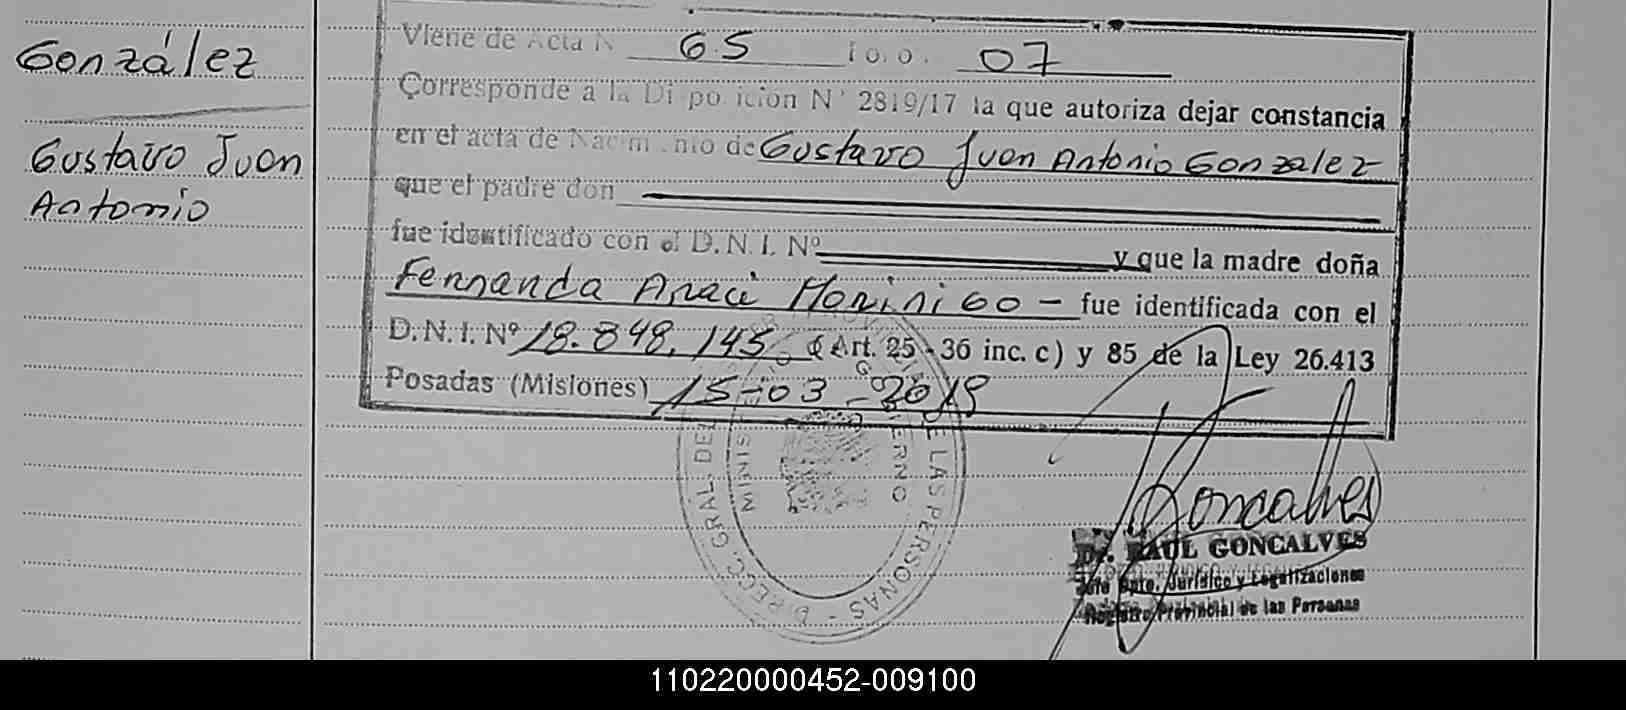 González
Gustavo Juan
Antonio
Viene de Acta N 65 Tomo. 07
Corresponde a la Disposición N° 2819/17 la que autoriza dejar constancia
en el acta de Nacimiento de Gustavo Juan Antonio Gonzalez
que el padre don
fue identificado con el D.N.I. Nº y que la madre doña
Fernanda fue identificada con el
D.N.I. Nº 18.848.145 (Art. 25 - 36 inc. c) y 85 de la Ley 26.413
Posadas (Misiones) 15-03-2018
DIRECC. GRAL. DEL DE LAS PERSONAS
GOBIERNO
Goncalves
Dr. RAUL GONCALVES
Jefe Dpto. Jurídico y Legalizaciones
Registro Provincial de las Personas
110220000452-009100